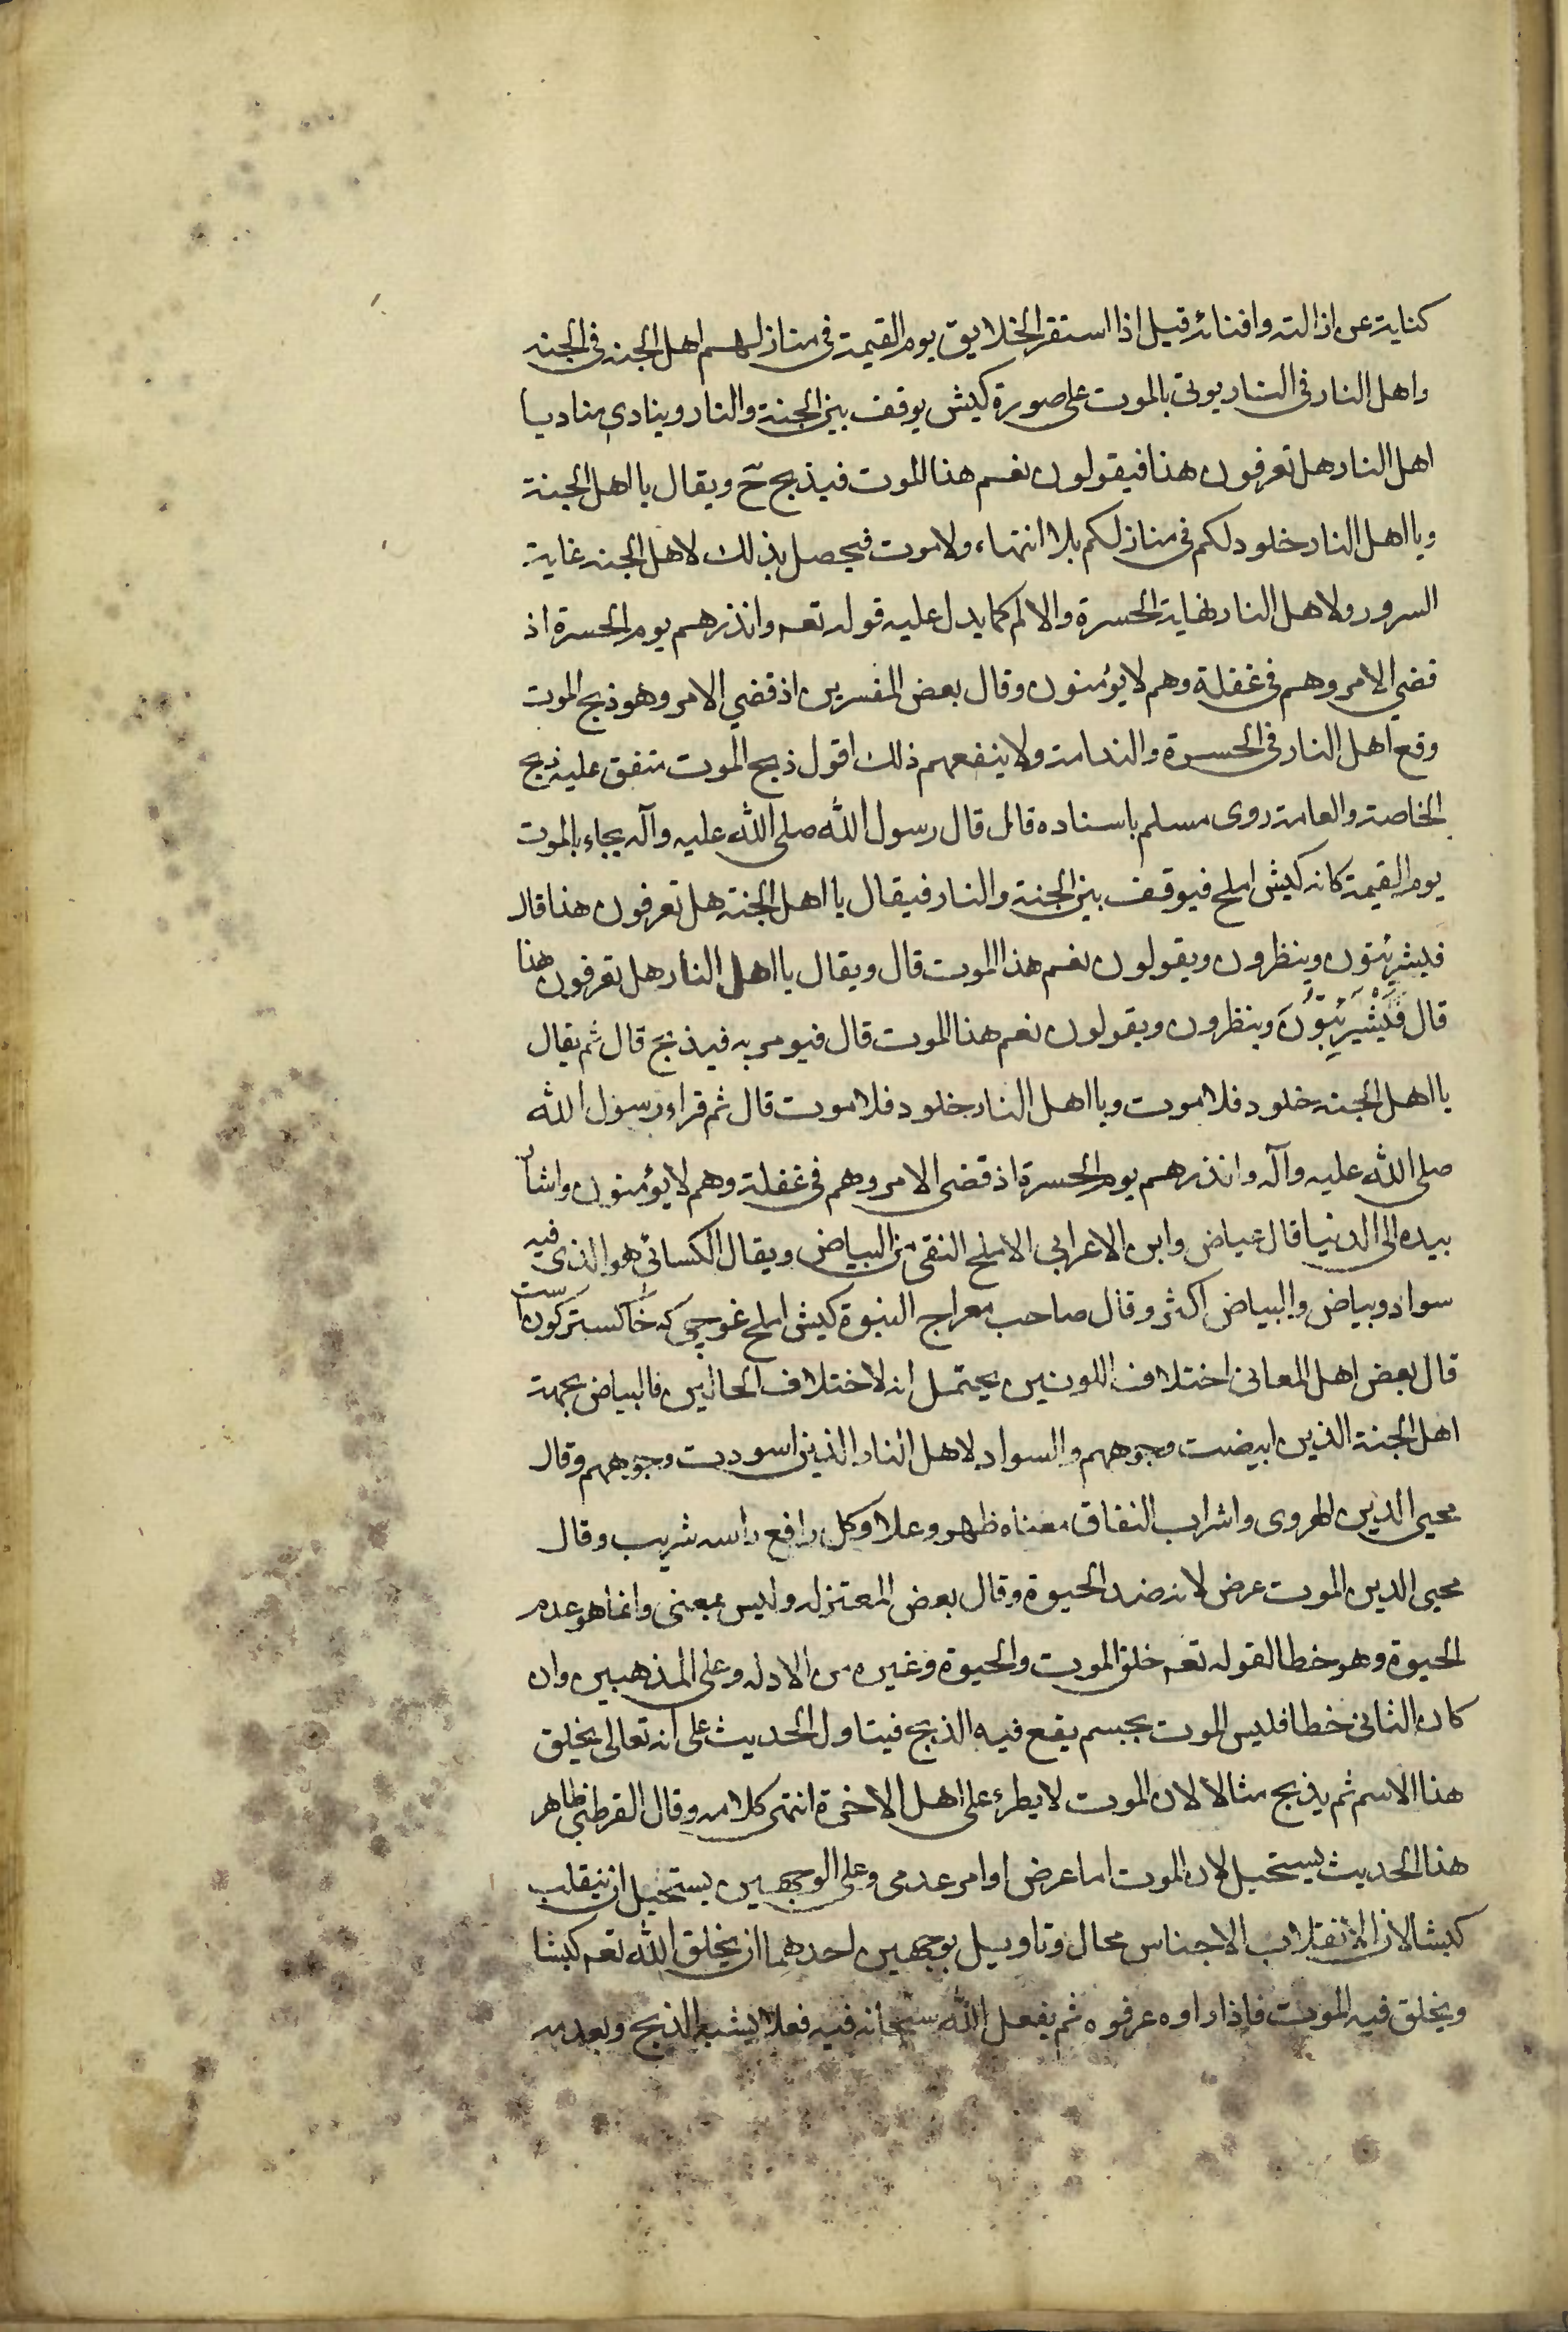 كناية عن ازالته وافنائه قيل اذا استقر الخلايق يوم القيمة في منازلهم اهل الجنه في الجنه
واهل النار في النار يوتى بالموت على صورة كبش يوقف بين الجنة والنار وينادي مناد يا
اهل النار هل تعرفون هذا فيقولون نعم هذا الموت فيذبح ح ويقال يا اهل الجنة
ويا اهل النار خلود لكم في منازلكم بلا انتهاء ولا موت فيحصل بذلك لاهل الجنه غاية
السرور ولاهل النار نهاية الحسرة والالم كما يدل عليه قوله تعه وانذرهم يوم الحسرة اذ
قضي الامر وهم في غفلة وهم لا يؤمنون وقال بعض المفسرين اذ قضي الامر وهو ذبح الموت
وقع اهل النار في الحسرة والندامة ولا ينفعهم ذلك اقول ذبح الموت متفق عليه ذبح
الخاصة والعامة روى مسلم باسناده قال قال رسول الله صلى الله عليه وآله يجاء بالموت
يوم القيمة كانه كبش املح فيوقف بين الجنة والنار فيقال يا اهل الجنة هل تعرفون هذا قال
فيشرئبون وينظرون ويقولون نعم هذا الموت قال ويقال يا اهل النار هل تعرفون هذا
قال فَيَشْرَئِبُّونَ وينظرون ويقولون نعم هذا الموت قال فيومر به فيذبح قال ثم يقال
يا اهل الجنه خلود فلا موت ويا اهل النار خلود فلا موت قال ثم قراء رسول الله
صلى الله عليه وآله وانذرهم يوم الحسرة اذ قضى الامر وهم في غفلة وهم لا يؤمنون واشار
بيده الى الدنيا قال عياض وابن الاعرابي الاملح النقي من البياض ويقال الكسائي هو الذي فيه
سواد وبياض والبياض اكثر وقال صاحب معراج النبوة كبش املح غوچی كه خاكستر كون است
قال بعض اهل المعاني اختلاف اللونين يحتمل انه لاختلاف الحالين فالبياض بجهة
اهل الجنة الذين ابيضت وجوههم والسواد لاهل النار الذين اسودت وجوههم وقال
محيى الدين الهروى واشراب النفاق معناه ظهر وعلا وكل رافع راسه شريب وقال
محيى الدين الموت عرض لانه ضد الحيوة وقال بعض المعتزله وليس بمعنى وانما هو عدم
الحيوة وهو خطا لقوله تعه خلق الموت والحيوة وغيره من الادله وعلى المذهبين وان
كان الثاني خطا فليس الموت بجسم يقع فيه الذبح فيتاول الحديث على انه تعالى يخلق
هذا الاسم ثم يذبح مثالا لان الموت لا يطرء على اهل الاخرة انتهى كلامه وقال القرطبي ظاهر
هذا الحديث يستحيل لان الموت اما عرض او امر عدمى وعلى الوجهين يستحيل ان ينقلب
كبشا لان انقلاب الاجناس محال وتاويل بوجهين احدهما ان يخلق الله تعه كبشا
ويخلق فيه الموت فاذا راوه عرفوه ثم يفعل الله سبحانه فيه فعلا يشبه الذبح وبعدمه